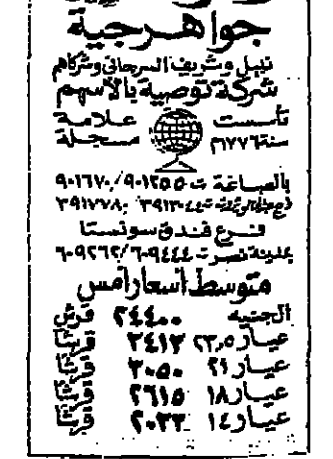 جواهرجية
نبيل وشريف السرجانى وشركاهم
شركة توصية بالأسهم
تأسست علامة
سنة ١٧٧٦م مسجلة
بالصاغة ت ٩٠١٢٥٥ / ٩٠١١٧٧٠
ت ٣٩١٣٠٤٤ ، ٣٩١٧٧٨٨
فرع فندق سونستا
بمدينة نصر ت ٦٠٩٤٤٤ / ٦٠٩٢٦٢
متوسط أسعار أمس
الجنيه ٢٤٤٠٠ قرش
عيار ٢٣,٥ ٣٤١٣ قرشا
عيار ٢١ ٣٠٥٠ قرشا
عيار ١٨ ٢٦١٥ قرشا
عيار ١٤ ٢٠٣٣ قرشا